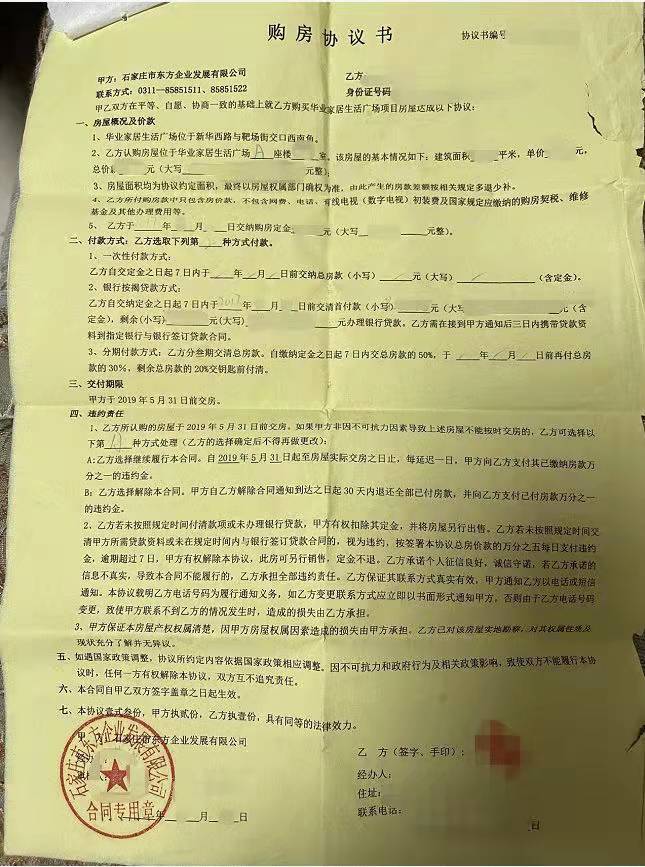 购房协议书
协议书编号
甲方：石家庄市东方企业发展有限公司
乙方
联系方式：0311—85851511、85851522
身份证号码
甲乙双方在平等、自愿、协商一致的基础上就乙方购买华业家居生活广场项目房屋达成以下协议：
一、房屋概况及价款
1、华业家居生活广场位于新华西路与靶场街交口西南角。
2、乙方认购房屋位于华业家居生活广场 A 座楼 室。该房屋的基本情况如下：建筑面积 平米，单价 元，
总价 元（大写 元整）
3、房屋面积均为协议约定面积，最终以房屋权属部门确权为准，由此产生的房款差额按相关规定多退少补。
4、乙方所付购房款中只包含房价款，不包含网费、电话、有线电视（数字电视）初装费及国家规定应缴纳的购房契税、维修
基金及其他办理费用等。
5、乙方于 年 月 日交纳购房定金 元（大写 元整）。
二、付款方式：乙方选取下列第 种方式付款。
1、一次性付款方式：
乙方自交定金之日起 7 日内于 年 月 日前交纳总房款（小写） 元（大写） （含定金）。
2、银行按揭贷款方式：
乙方自交纳定金之日起 7 日内于 年 月 日前交清首付款（小写） 元（大写 元（含
定金），剩余(小写) 元(大写) 元办理银行贷款。乙方需在接到甲方通知后三日内携带贷款资
料到指定银行与银行签订贷款合同。
3、分期付款方式：乙方分叁期交清总房款。自缴纳定金之日起 7 日内交总房款的 50%，于 年 月 日前再付总房
款的 30%，剩余总房款的 20%交钥匙前付清。
三、交付期限
甲方于 2019 年 5 月 31 日前交房。
四、违约责任
1、乙方所认购的房屋于 2019 年 5 月 31 日前交房。如果甲方非因不可抗力因素导致上述房屋不能按时交房的，乙方可选择以
下第 A 种方式处理（乙方的选择确定后不得再做更改）：
A:乙方选择继续履行本合同。自 2019 年 5 月 31 日起至房屋实际交房之日止，每延迟一日，甲方向乙方支付其已缴纳房款万
分之一的违约金。
B：乙方选择解除本合同。甲方自乙方解除合同通知到达之日起 30 天内退还全部已付房款，并向乙方支付已付房款万分之一
的违约金。
2、乙方若未按照规定时间付清款项或未办理银行贷款，甲方有权扣除其定金，并将房屋另行出售。乙方若未按照规定时间交
清甲方所需贷款资料或未在规定时间内与银行签订贷款合同的，视为违约，按签署本协议总房价款的万分之五每日支付违约
金，逾期超过 7 日，甲方有权解除本协议，此房可另行销售，定金不退。乙方承诺个人征信良好，诚信守诺，若乙方承诺的
信息不真实，导致本合同不能履行的，乙方承担全部违约责任。乙方保证其联系方式真实有效，甲方通知乙方以电话或短信
通知。本协议载明乙方电话号码为履行通知义务，如乙方变更联系方式应立即以书面形式通知甲方，否则由于乙方电话号码
变更，致使甲方联系不到乙方的情况发生时，造成的损失由乙方承担。
3、甲方保证本房屋产权权属清楚，因甲方房屋权属因素造成的损失由甲方承担。乙方已对该房屋实地勘察，对其权属性质及
现状充分了解并无异议。
五、如遇国家政策调整，协议所约定内容依据国家政策相应调整。因不可抗力和政府行为及相关政策影响，致使双方不能履行本协
议时，任何一方有权解除本协议，双方互不追究责任。
六、本合同自甲乙双方签字盖章之日起生效。
七、本协议壹式叁份，甲方执贰份，乙方执壹份，具有同等的法律效力。
甲 方：石家庄市东方企业发展有限公司
乙 方（签字、手印）：
经办人：
住址：
联系电话：
石家庄市东方企业发展有限公司
合同专用章
年 月 日
日